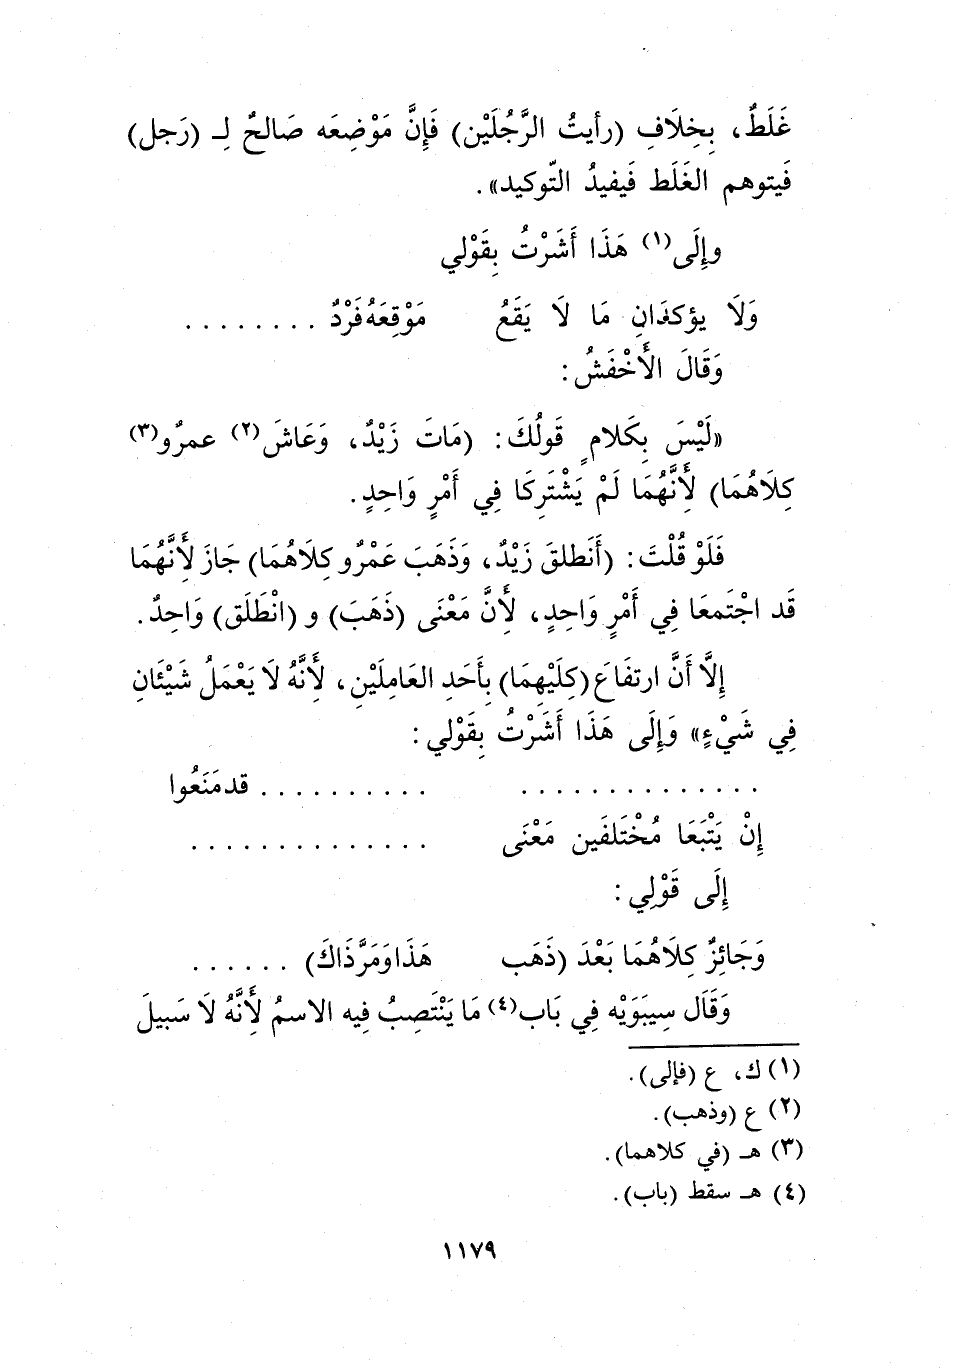 غَلَطٌ، بِخِلَافِ (رأيتُ الرَّجُلَيْن) فَإِنَّ مَوْضِعَه صَالحٌ لِـ (رَجل)
فَيتوهم الغَلَط فَيفيدُ التّوكيد».
وإِلَى(١) هَذَا أَشَرْتُ بِقَوْلي
وَلَا يؤكدَانِ مَا لَا يَقَعُ مَوْقِعَهُ فَرْدٌ ........
وَقَالَ الأَخْفَشُ:
«لَيْسَ بِكَلامٍ قَولُكَ: (مَاتَ زَيْدٌ، وَعَاشَ(٢) عمرٌو(٣)
كِلَاهُمَا) لِأَنَّهُمَا لَمْ يَشْتَرِكَا فِي أَمْرٍ وَاحِدٍ.
فَلَوْ قُلْتَ: (أَنطلقَ زَيْدٌ، وَذَهَبَ عَمْرٌو كِلَاهُمَا) جَازَ لِأَنَّهُمَا
قَد اجْتَمعَا فِي أَمْرٍ وَاحِدٍ، لِأَنَّ مَعْنَى (ذَهَبَ) و (انْطَلَق) وَاحِدٌ.
إِلَّا أَنَّ ارتفَاعَ (كِلَيْهِمَا) بِأَحَدِ العَامِلَيْنِ، لِأَنَّهُ لَا يَعْمَلُ شَيْئَانِ
فِي شَيْءٍ» وَإِلَى هَذَا أَشَرْتُ بِقَوْلي:
.............. .......... قد مَنَعُوا
إِنْ يَتْبَعَا مُخْتَلفَين مَعْنَى ..............
إِلَى قَوْلِي:
وَجَائِزٌ كِلَاهُمَا بَعْدَ (ذَهَب هَذَا وَمَرَّ ذَاكَ) ......
وَقَال سِيبَوَيْه فِي بَاب(٤) مَا يَنْتَصِبُ فِيه الاسمُ لِأَنَّهُ لَا سَبيلَ
(١) ك، ع (فإلى).
(٢) ع (وذهب).
(٣) هـ (في كلاهما).
(٤) هـ سقط (باب).
١١٧٩